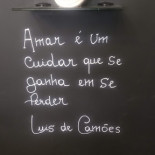 Amar é um
cuidar que se
ganha em se
perder
Luís de Camões